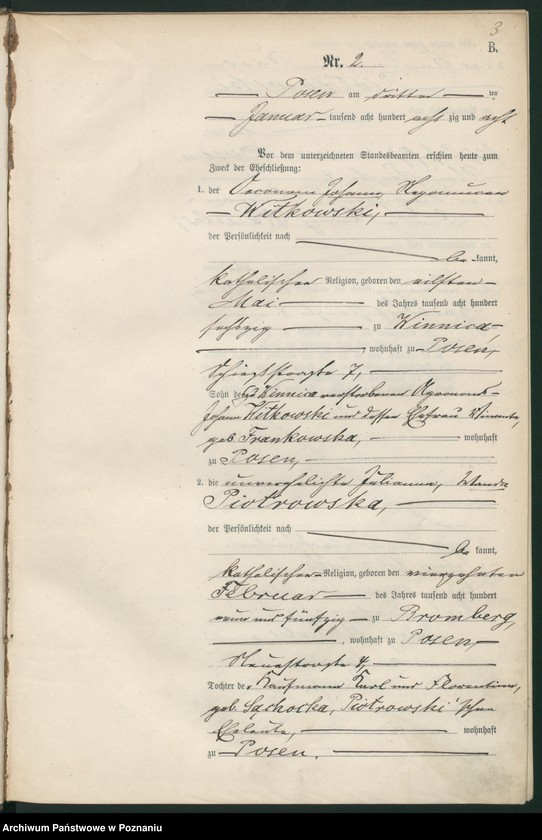 3
B.
Nr. 2.
Posen am dritten ten
Januar tausend acht hundert acht zig und acht
Vor dem unterzeichneten Standesbeamten erschien heute zum
Zweck der Eheschließung:
1. der Oeconom Johann
Witkowski,
der Persönlichkeit nach
be kannt,
katholischer Religion, geboren den eilften
Mai des Jahres tausend acht hundert
sechszig zu Winnica
, wohnhaft zu Posen,
Schießstraße 7,
Sohn des zu Winnica verstorbenen Agronoms
Johann Witkowski und dessen Ehefrau
geb. Frankowska, wohnhaft
zu Posen,
2. die unverehelichte Julianna, Wanda
Piotrowska,
der Persönlichkeit nach
be kannt,
katholischer Religion, geboren den vierzehnten
Februar des Jahres tausend acht hundert
neun und fünfzig zu Bromberg,
, wohnhaft zu Posen,
Neuestraße 4,
Tochter der Kaufmann Karl und Florentina,
geb. Sachocka, Piotrowski'schen
Eheleute, wohnhaft
zu Posen.
Archiwum Państwowe w Poznaniu